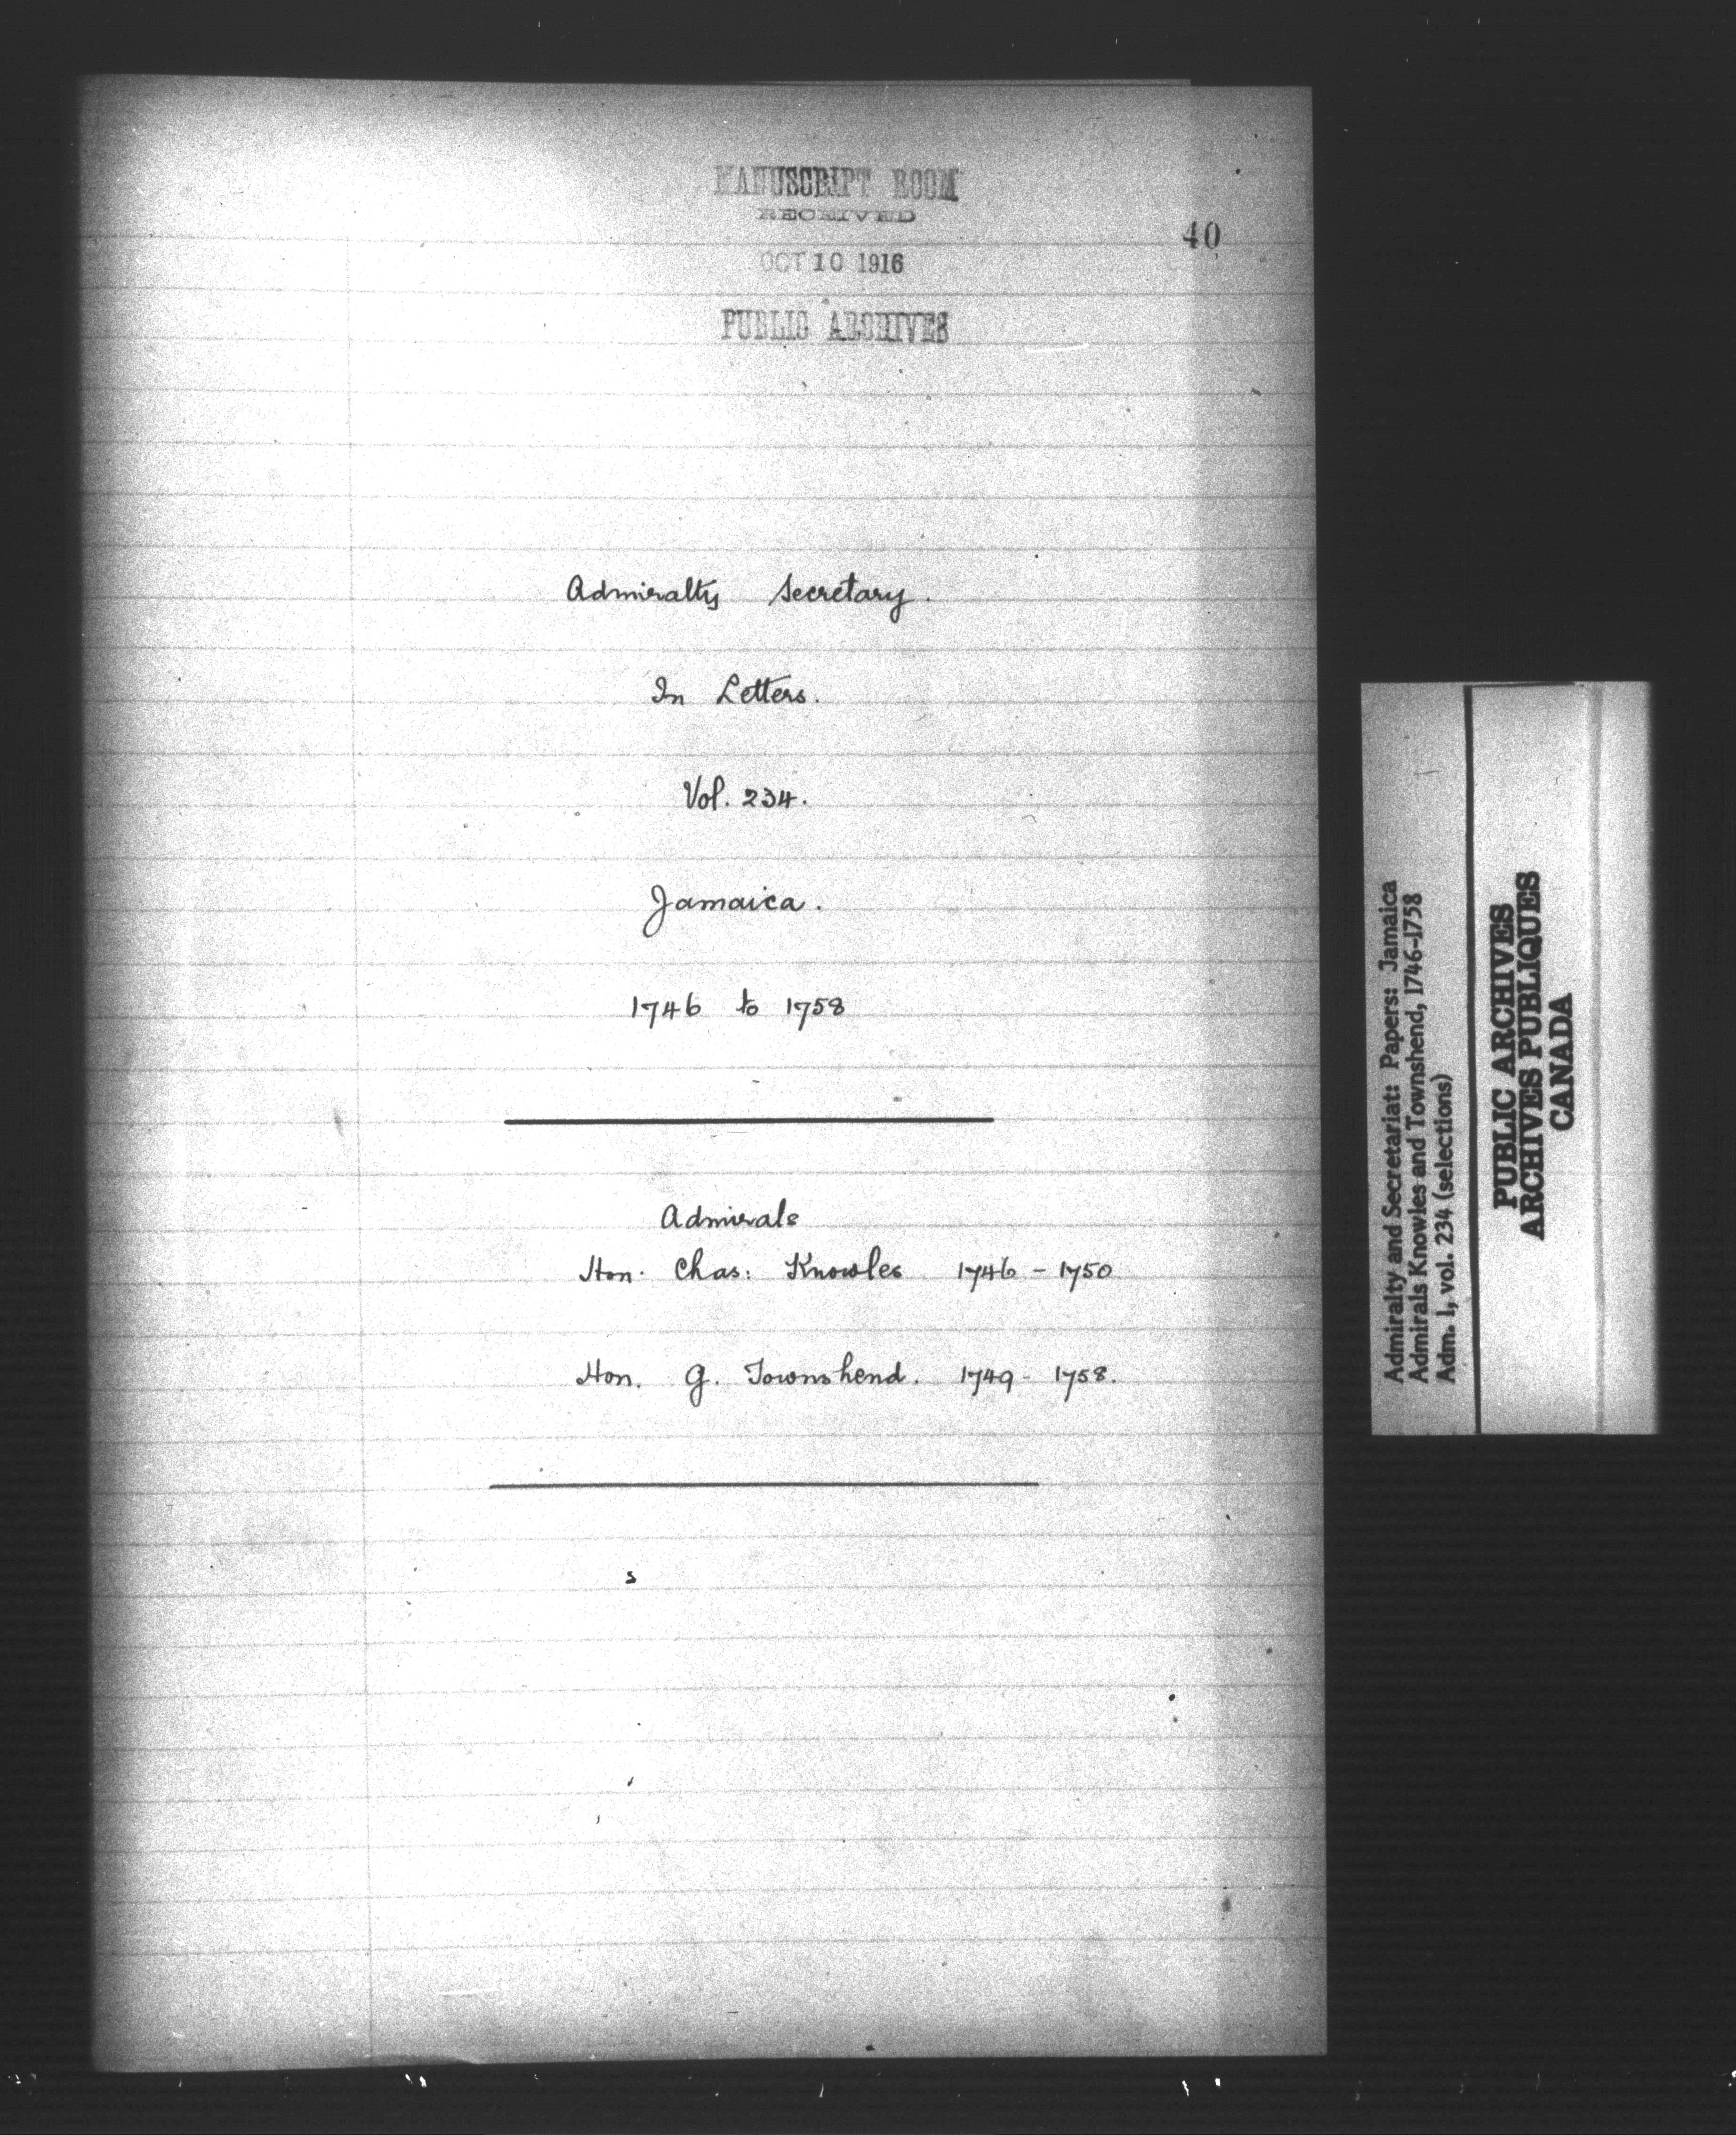 MANUSCRIPT ROOM
RECEIVED
40
OCT 10 1916
PUBLIC ARCHIVES
Admiralty Secretary.
In Letters.
Vol. 234.
Jamaica.
1746 to 1758
Admirals
Hon. Chas: Knowles 1746 - 1750
Hon. G. Townshend. 1749 - 1758.
Admiralty and Secretariat: Papers: Jamaica
Admirals Knowles and Townshend, 1746-1758
Adm. 1, vol. 234 (selections)
PUBLIC ARCHIVES
ARCHIVES PUBLIQUES
CANADA